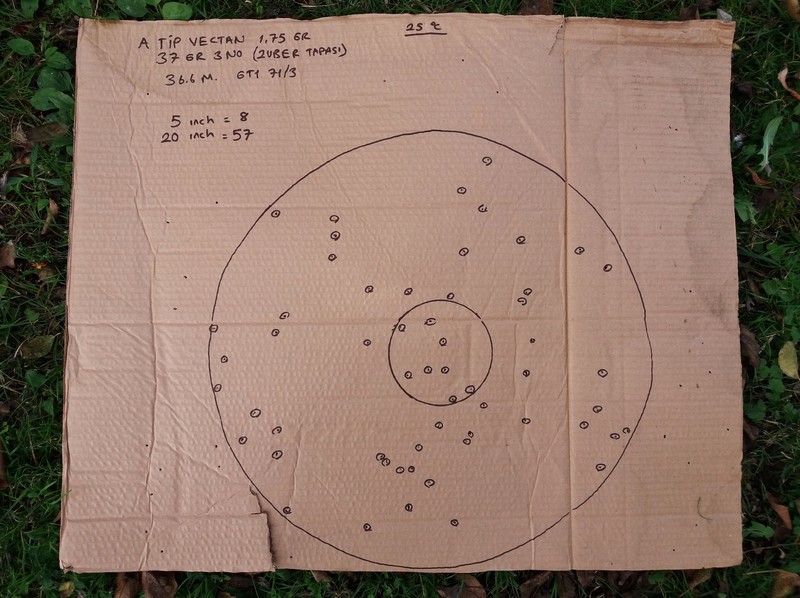 25 ℃
A TİP VECTAN 1.75 GR
37 GR 3 NO (ZUBER TAPASI)
36.6 M. GT1 71/3
5 inch = 8
20 inch = 57